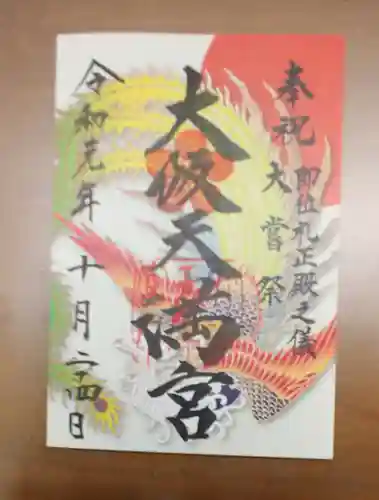 奉祝
即位礼正殿之儀
大嘗祭
大阪天満宮
令和元年十月二十四日